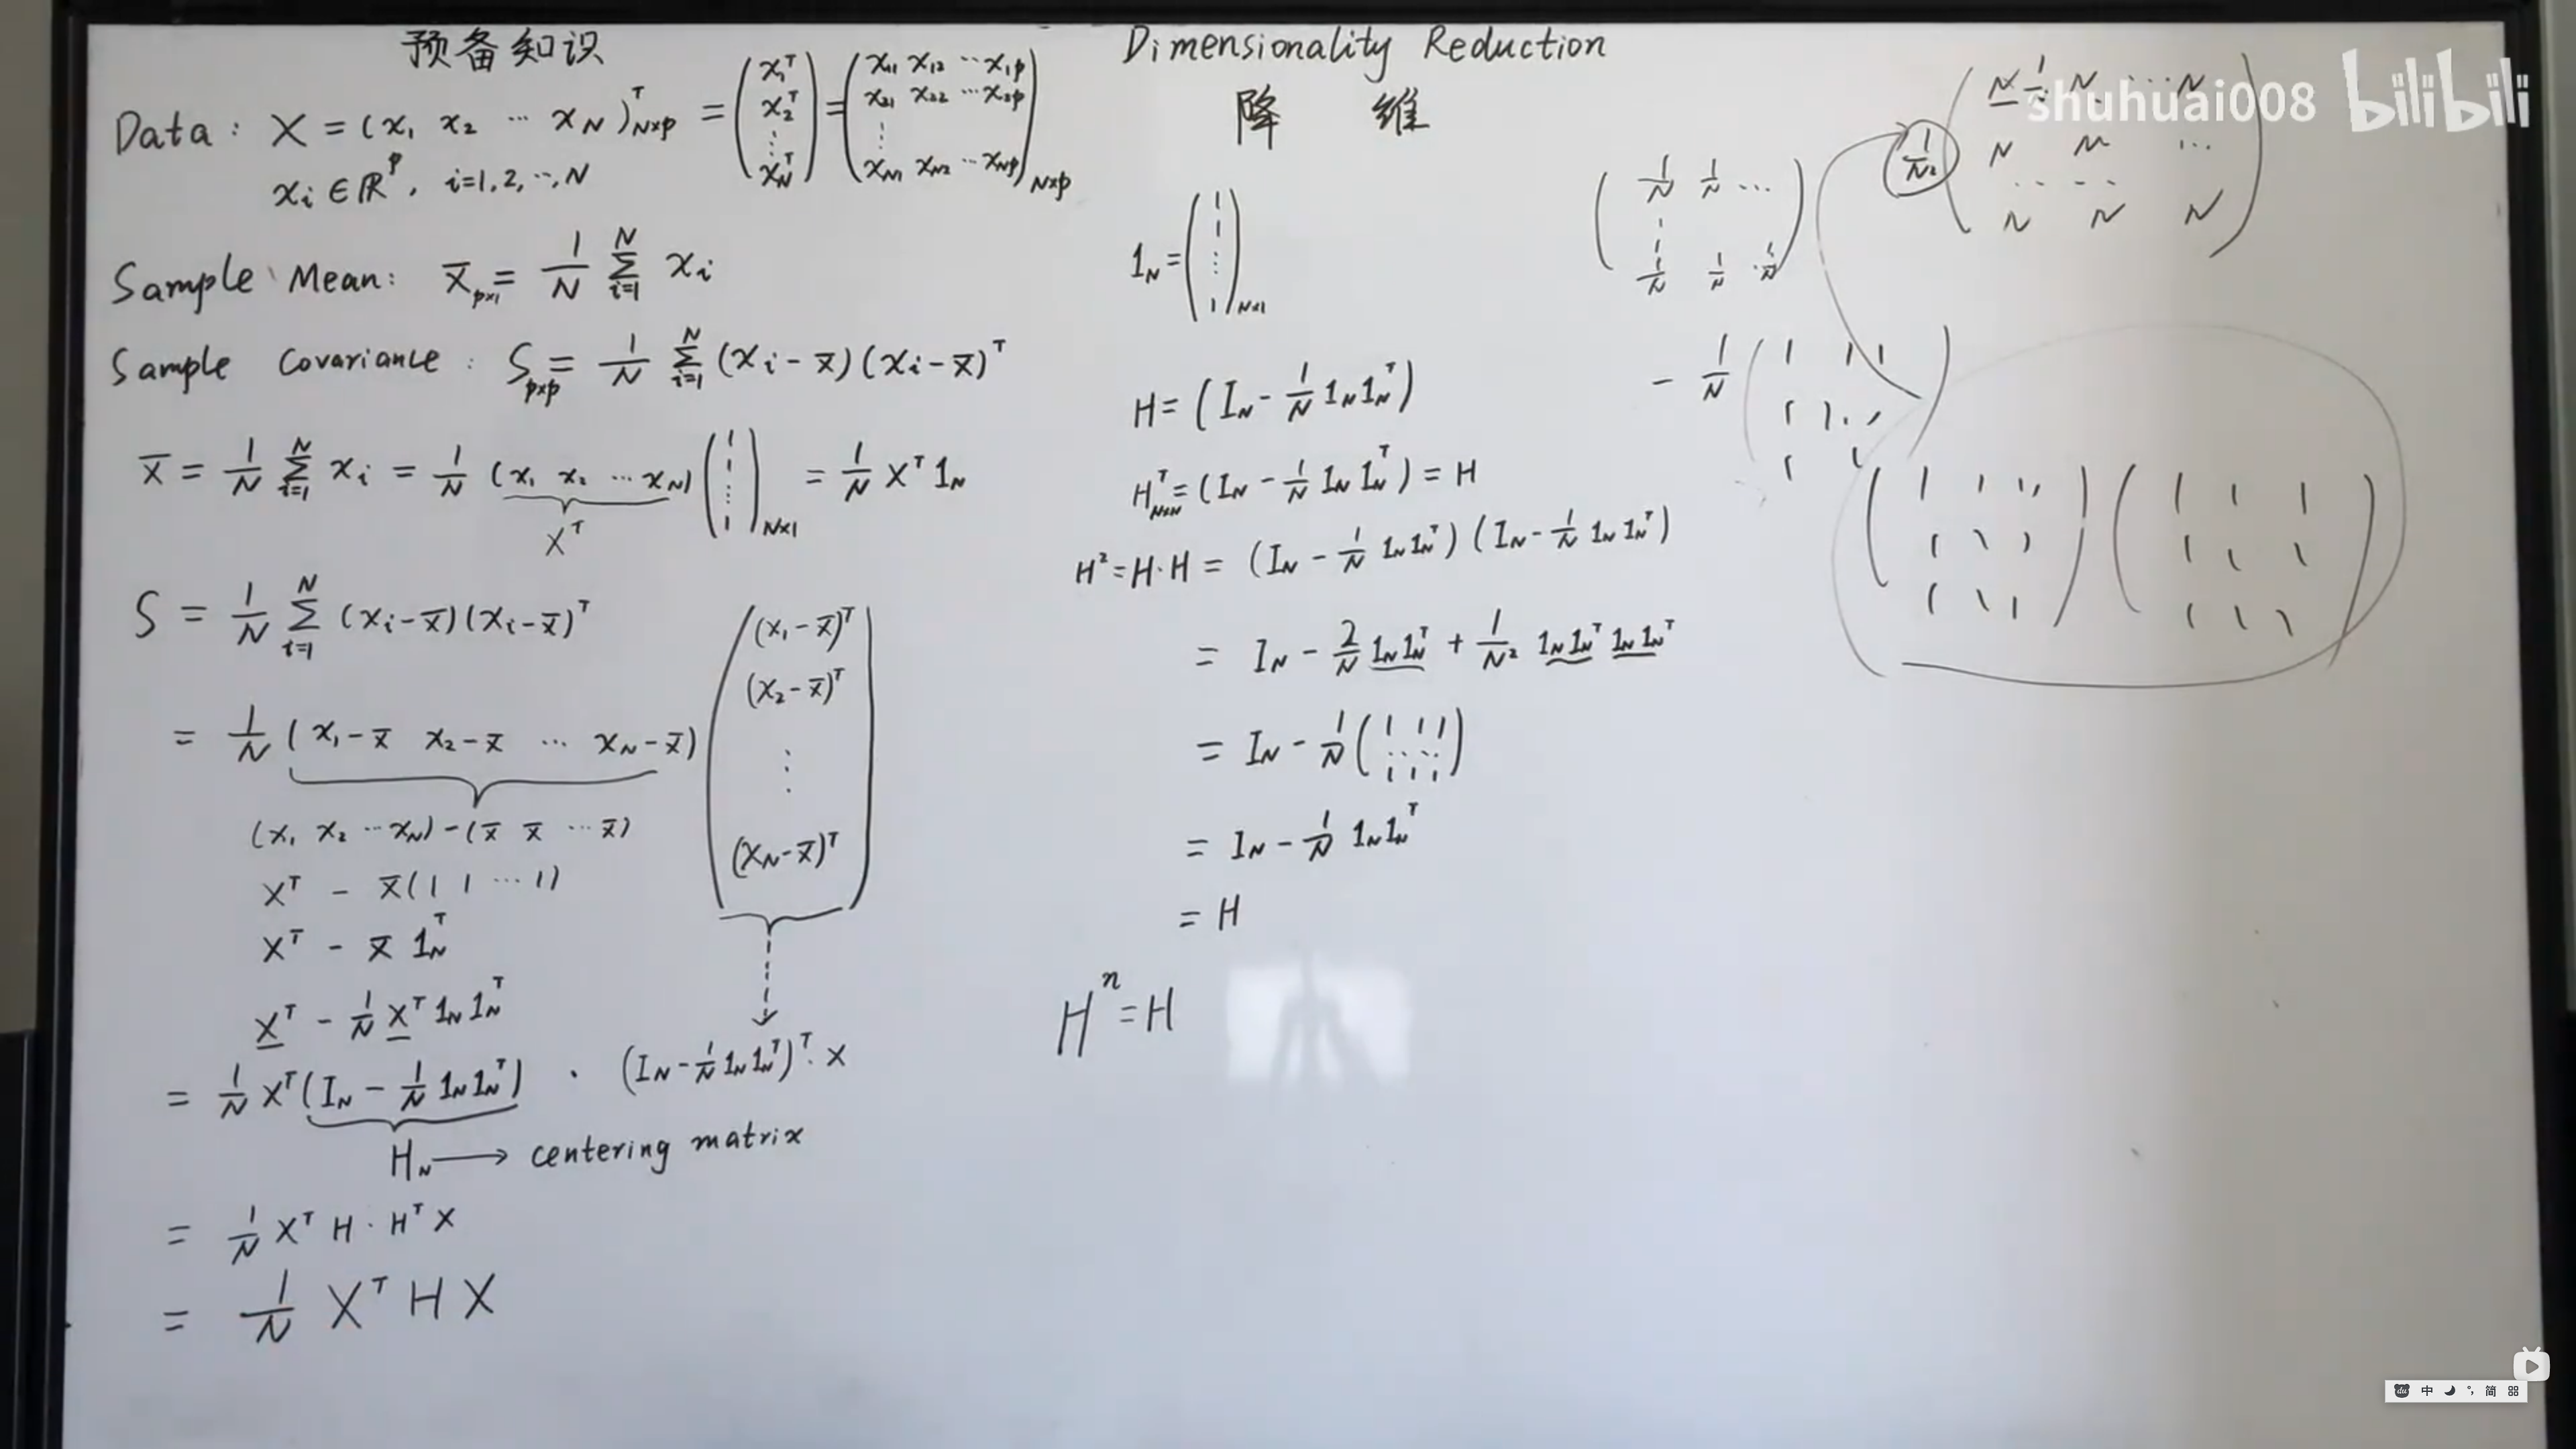 预备知识
Data: X = (x₁ x₂ ⋯ x_N)ᵀ_{N×p} = (x₁ᵀ x₂ᵀ ⋮ x_Nᵀ) = (x₁₁ x₁₂ ⋯ x₁p x₂₁ x₂₂ ⋯ x₂p ⋮ x_N1 x_N2 ⋯ x_Np)_{N×p}
xᵢ ∈ ℝᵖ, i=1,2,⋯,N
Sample Mean: x̄_{p×1} = 1/N Σ_{i=1}^N xᵢ
Sample Covariance: S_{p×p} = 1/N Σ_{i=1}^N (xᵢ - x̄)(xᵢ - x̄)ᵀ
x̄ = 1/N Σ_{i=1}^N xᵢ = 1/N (x₁ x₂ ⋯ x_N) (1 1 ⋮ 1)_{N×1} = 1/N Xᵀ 1_N
Xᵀ
S = 1/N Σ_{i=1}^N (xᵢ - x̄)(xᵢ - x̄)ᵀ
= 1/N (x₁ - x̄ x₂ - x̄ ⋯ x_N - x̄) ((x₁ - x̄)ᵀ (x₂ - x̄)ᵀ ⋮ (x_N - x̄)ᵀ)
(x₁ x₂ ⋯ x_N) - (x̄ x̄ ⋯ x̄)
Xᵀ - x̄(1 1 ⋯ 1)
Xᵀ - x̄ 1_Nᵀ
Xᵀ - 1/N Xᵀ 1_N 1_Nᵀ
= 1/N Xᵀ(I_N - 1/N 1_N 1_Nᵀ) · (I_N - 1/N 1_N 1_Nᵀ)ᵀ · X
H_N → centering matrix
= 1/N Xᵀ H · Hᵀ X
= 1/N Xᵀ H X
Dimensionality Reduction
降 维
1_N = (1 1 ⋮ 1)_{N×1}
H = (I_N - 1/N 1_N 1_Nᵀ)
Hᵀ_{N×N} = (I_N - 1/N 1_N 1_Nᵀ) = H
H² = H·H = (I_N - 1/N 1_N 1_Nᵀ)(I_N - 1/N 1_N 1_Nᵀ)
= I_N - 2/N 1_N 1_Nᵀ + 1/N² 1_N 1_Nᵀ 1_N 1_Nᵀ
= I_N - 1/N (1 1 1 ⋯ 1 1 1)
= I_N - 1/N 1_N 1_Nᵀ
= H
Hⁿ = H
(1/N 1/N ⋯ ⋮ 1/N 1/N 1/N)
1/N² (N N ⋯ N N N ⋯ N N N)
- 1/N (1 1 1 1 1 1 1)
(1 1 1 1 1 1 1 1 1) (1 1 1 1 1 1 1 1 1)
shuhuai008 bilibili
中 简